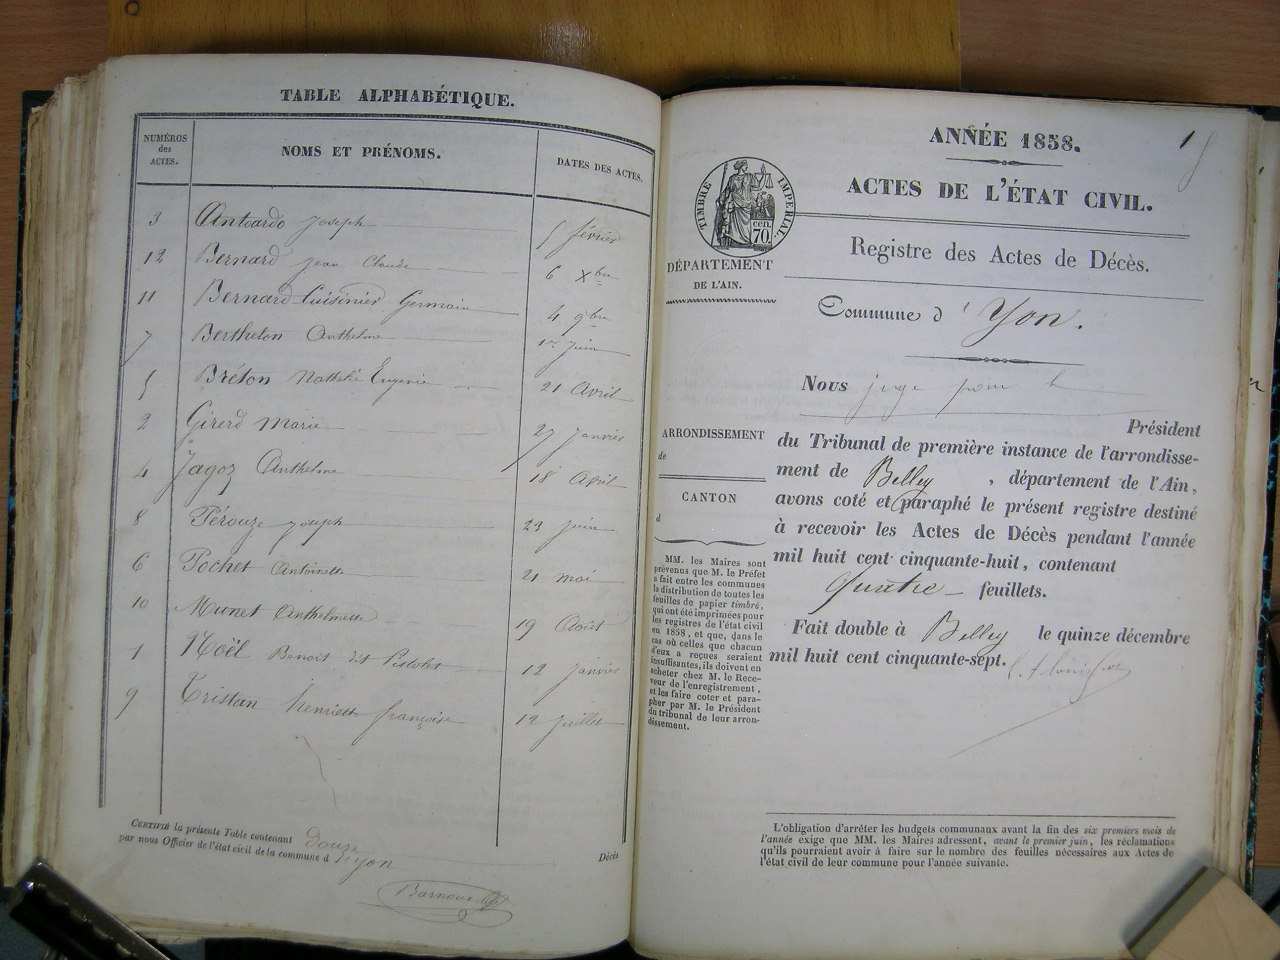 TABLE ALPHABÉTIQUE.
NUMÉROS des ACTES. NOMS ET PRÉNOMS. DATES DES ACTES.
3 Antoardo Joseph 5 février
12 Bernard Jean Claude 6 Xbre
11 Bernard-Cuisinier Germain 4 9bre
7 Berthelon Anthelme 1er Juin
5 Bréton Nathalie Eugénie 21 Avril
2 Girerd Marie 27 Janvier
4 Jagoz Anthelme 18 Avril
8 Pérouze Joseph 23 Juin
6 Pochet Antoinette 21 Mai
10 Munet Anthelmette 19 Août
1 Noël Benoit dit 12 Janvier
9 Tristan Henriette françoise 12 Juillet
CERTIFIÉ la présente Table contenant Douze Décès
par nous Officier de l'état civil de la commune d'Yon
ANNÉE 1858.
1
ACTES DE L'ÉTAT CIVIL.
TIMBRE IMPÉRIAL
cen. 70.
Registre des Actes de Décès.
DÉPARTEMENT
DE L'AIN.
Commune d'Yon.
Nous juge pour le
Président
ARRONDISSEMENT
de
CANTON
d
du Tribunal de première instance de l'arrondisse-
ment de Belley, département de l'Ain,
avons coté et paraphé le présent registre destiné
à recevoir les Actes de Décès pendant l'année
mil huit cent cinquante-huit, contenant
Quatre feuillets.
Fait double à Belley le quinze décembre
mil huit cent cinquante-sept.
MM. les Maires sont
prévenus que M. le Préfet
a fait entre les communes
la distribution de toutes les
feuilles de papier timbré,
qui ont été imprimées pour
les registres de l'état civil
en 1858, et que, dans le
cas où celles que chacun
d'eux a reçues seraient
insuffisantes, ils doivent en
acheter chez M. le Rece-
veur de l'enregistrement,
et les faire coter et para-
pher par M. le Président
du tribunal de leur arron-
dissement.
L'obligation d'arrêter les budgets communaux avant la fin des six premiers mois de
l'année exige que MM. les Maires adressent, avant le premier juin, les réclamations
qu'ils pourraient avoir à faire sur le nombre des feuilles nécessaires aux Actes de
l'état civil de leur commune pour l'année suivante.